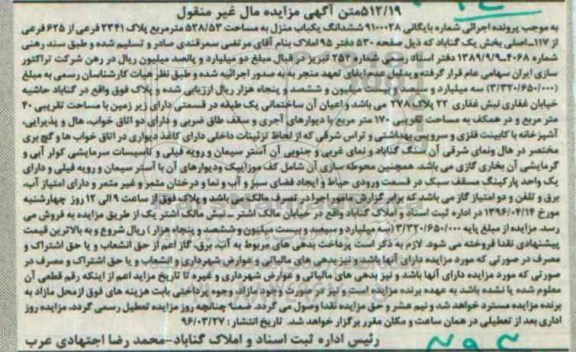 ۵۱۲/۱۹متن آگهی مزایده مال غیر منقول
به موجب پرونده اجرائی شماره بایگانی ۹۱۰۰۰۲۸ ششدانگ یکباب منزل به مساحت ۵۲۸/۵۳ مترمربع پلاک ۲۳۴۱ فرعی از ۶۲۵ فرعی
از ۱۱۷ـ اصلی بخش یک گناباد که ذیل صفحه ۵۳۰ دفتر ۹۵ املاک بنام آقای مرتضی سمرقندی صادر و تسلیم شده و طبق سند رهنی
شماره ۴۰۶۸ـ۱۳۸۹/۹/۹ دفتر اسناد رسمی شماره ۲۵۴ تبریز در قبال مبلغ دو میلیارد و پانصد میلیون ریال در رهن شرکت تراکتور
سازی ایران سهامی عام قرار گرفته و بدلیل عدم ایفای تعهد منجر به صدور اجرائیه شده و طبق نظر هیات کارشناسان رسمی به مبلغ
(۳/۳۲۰/۶۵۰/۰۰۰) سه میلیارد و سیصد و بیست میلیون و ششصد و پنجاه هزار ریال ارزیابی شده و پلاک فوق واقع در گناباد حاشیه
خیابان غفاری نبش غفاری ۲۲ پلاک ۲۷۸ می باشد و اعیان آن ساختمانی یک طبقه در قسمتی دارای زیر زمین با مساحت تقریبی ۴۰
متر مربع و در همکف به مساحت تقریبی ۱۷۰ متر مربع با دیوارهای آجری و سقف طاق ضربی و دارای دو اتاق خواب، هال و پذیرایی،
آشپزخانه با کابینت فلزی و سرویس بهداشتی و تراس شرقی که از لحاظ تزئینات داخلی دارای کاغذ دیواری در اتاق خواب ها و گچ بری
مختصر در هال ونمای شرقی آن سنگ گناباد و نمای غربی و جنوبی آن آستر سیمان و رویه فیلی و تاسیسات سرمایشی کولر آبی و
گرمایشی آن بخاری گازی می باشد. همچنین محوطه سازی آن شامل کف موزاییک ودیوارهای آن با آستر سیمان و رویه فیلی و دارای
یک واحد پارکینگ مسقف سبک در قسمت ورودی حیاط و ایجاد فضای سبز و آب و نما و درختان مثمر و غیر مثمر و دارای امتیاز آب،
برق و تلفن و دو امتیاز گاز می باشد که برابر گزارش مامور اجرا در تصرف مالک می باشد و پلاک فوق از ساعت ۹ الی ۱۲ روز چهارشنبه
مورخ ۱۳۹۶/۰۴/۱۴ در اداره ثبت اسناد و املاک گناباد واقع در خیابان مالک اشتر ـ نبش مالک اشتر یک از طریق مزایده به فروش می
رسد. مزایده از مبلغ پایه ۳/۳۲۰/۶۵۰/۰۰۰ (سه میلیارد و سیصد و بیست میلیون و ششصد و پنجاه هزار) ریال شروع و به بالاترین قیمت
پیشنهادی نقدا فروخته می شود. لازم به ذکر است پرداخت بدهی های مربوط به آب، برق، گاز اعم از حق انشعاب و یا حق اشتراک و
مصرف در صورتی که مورد مزایده دارای آنها باشد و نیز بدهی های مالیاتی و عوارض شهرداری و انشعاب و یا حق اشتراک و مصرف در
صورتی که مورد مزایده دارای آنها باشد و نیز بدهی های مالیاتی و عوارض شهرداری و غیره تا تاریخ مزاید اعم از اینکه رقم قطعی آن
معلوم شده یا نشده باشد به عهده برنده مزایده است و نیز در صورت وجود مازاد، وجوه پرداختی بابت هزینه های فوق ازمحل مازاد به
برنده مزایده مسترد خواهد شد و نیم عشر و حق مزایده نقدا وصول می گردد. ضمنا چنانچه روز مزایده تعطیل رسمی گردد، مزایده روز
اداری بعد از تعطیلی در همان ساعت و مکان مقرر برگزار خواهد شد. تاریخ انتشار: ۹۶/۰۳/۲۷
رئیس اداره ثبت اسناد و املاک گناباد-محمد رضا اجتهادی عرب